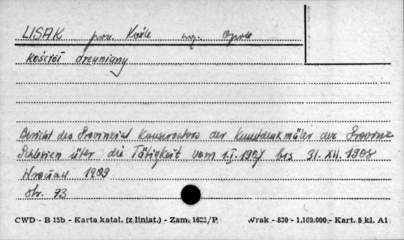 LISAK pow. Koźle woj. Opole
kościół drewniany
Bericht des Provinzial Konservators der Kunstdenkmäler der Provinz
Schlesien über die Tätigkeit vom 1.I.1907 bis 31.XII.1908
Wrocław 1909
str. 73
CWD - B 15b - Karta katal. (z liniat.) - Zam. 1623/P. Wrak - 830 - 1.169.000 - Kart. 5 kl. A1